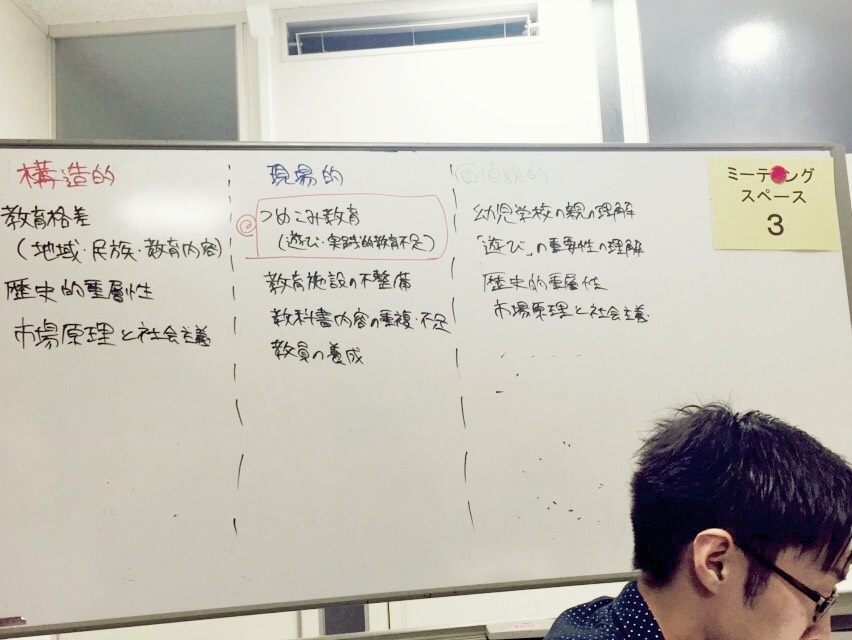 構造的
教育格差
(地域・民族・教育内容)
歴史的重層性
市場原理と社会主義
現場的
つめこみ教育
(遊び・実践的教育不足)
教育施設の不整備
教科書内容の重複・不足
教員の養成
価値観的
幼児学校の親の理解
「遊び」の重要性の理解
歴史的重層性
市場原理と社会主義
ミーティング
スペース
3